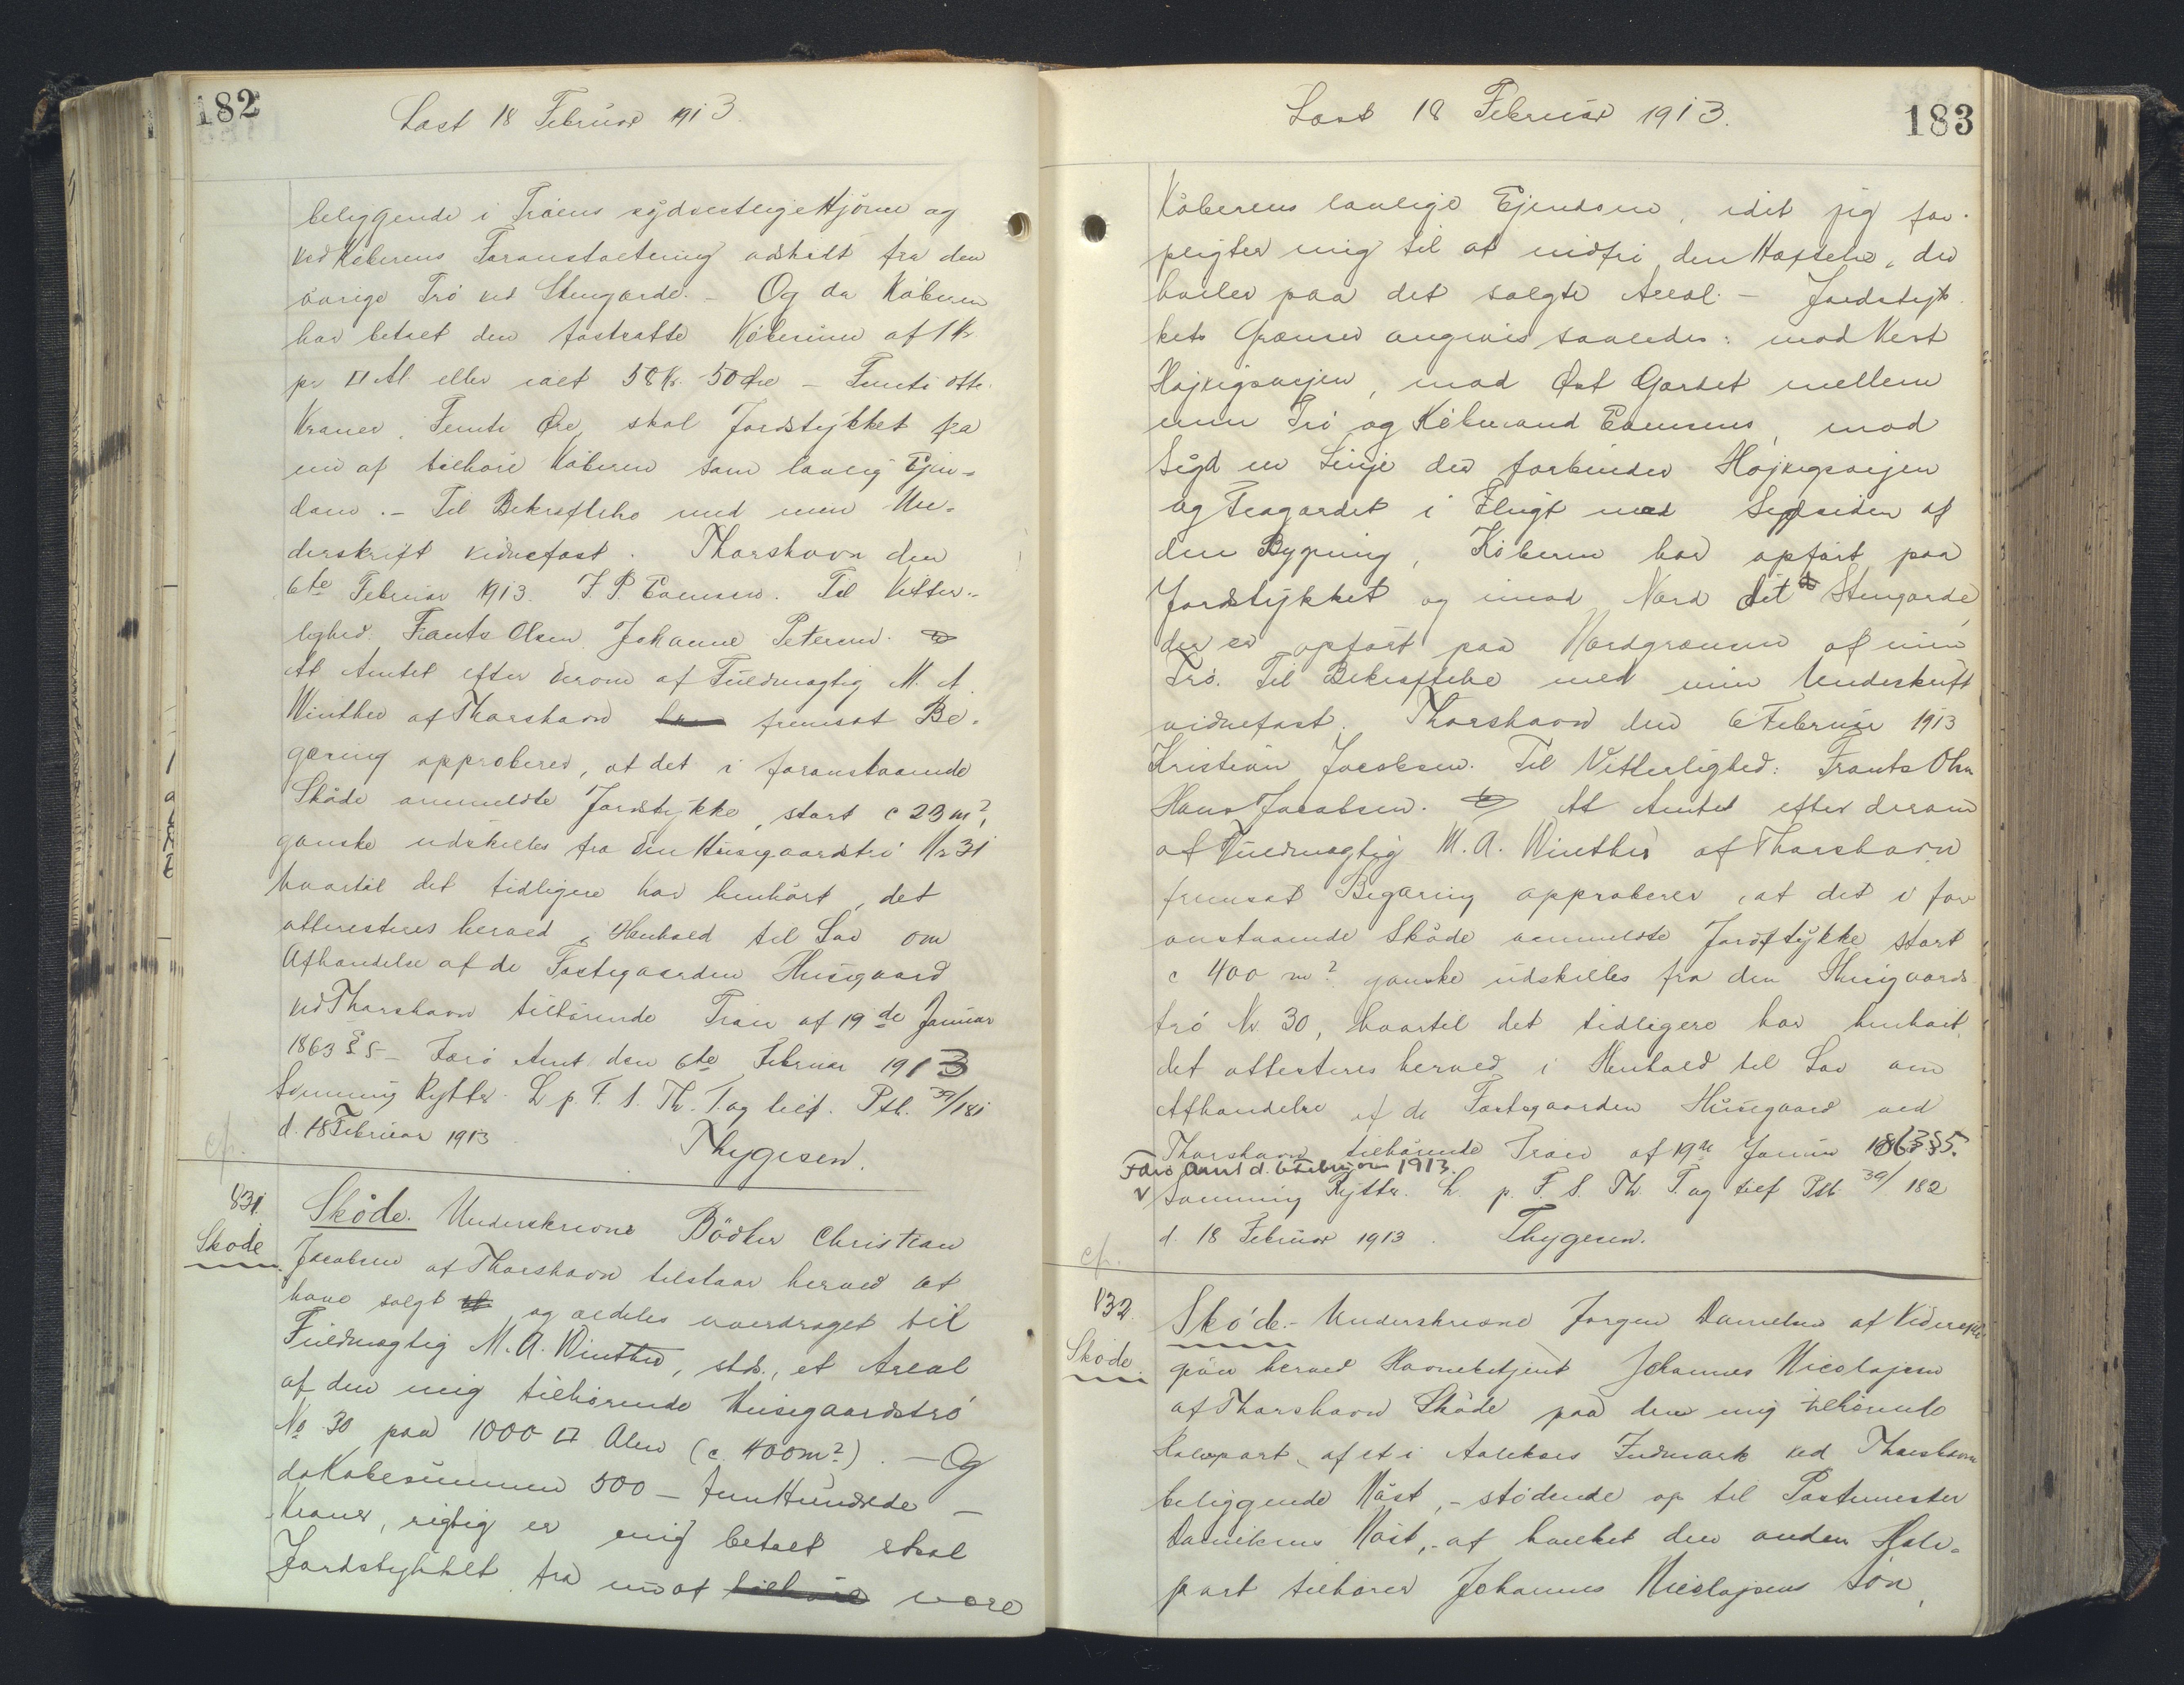 182
Læst 18 Februar 1913.
beliggende i Tröens sydvestlige Hjörne og
ved Köberens Foranstaltning adskildt fra den
övrige Trö ved Stengærde. - Og da Köberen
har betalt den fastsatte Köbesum af 1 Kr
pr □ Al. eller ialt 58 Kr. 50 Øre - Femti otte
Kroner, Femti Øre, skal Jordstykket fra
nu af tilhöre Köberen som lovlig Ejen=
dom. - Til Bekræftelse med min Un=
derskrift vidnefast. Thorshavn den
6te Februar 1913. J. P. Poulsen. Til Vitter=
lighed. Frants Olsen Johanne Petersen.
At Amtet efter derom af Fuldmægtig M. A.
Winther af Thorshavn fremsat Be=
gæring approberer, at det i foranstaaende
Sköde ommeldte Jordstykke, stort c 23 m²,
ganske udskilles fra den Husgaardströ Nr 31
hvortil det tidligere har henhört, det
attesteres herved i Henhold til Lov om
Afhændelse af de Fæstegaarden Husgaard
ved Thorshavn tilhörende Tröer af 19de Januar
1863 § 5 - Færö Amt den 6te Februar 1913
Svenning Rytter. L. p. F. S. Th. T. og lief. Ptb. 39/181
d. 18 Februar 1913
Thygesen.
cf.
831.
Sköde
Sköde. Underskrevne Bödker Christian
Jacobsen af Thorshavn tilstaar herved at
have solgt og aldeles overdraget til
Fuldmægtig M. A. Winther, sts., et Areal
af den mig tilhörende Husgaardströ
No 30 paa 1000 □ Alen (c. 400 m²). - Og
da Köbesummen 500 - Fem Hundrede -
Kroner, rigtig er mig betalt skal
Jordstykket fra nu af være
183
Læst 18 Februar 1913.
Köberens lovlige Ejendom, idet jeg for=
pligter mig til at indfri den Hæftelse, der
hviler paa det solgte Areal. - Jordstyk
kets Grænser angives saaledes: mod Vest
Højvigsvejen, mod Øst Gærdet mellem
min Trö og Köbmand Poulsens, mod
Syd en Linje der forbinder Højvigsvejen
og Trögærdet i Flugt med Sydsiden af
den Bygning, Köberen har opfört paa
Jordstykket og imod Nord det Stengærde,
der er opfört paa Nordgrænsen af min
Trö. Til Bekræftelse med min Underskrift
vidnefast. Thorshavn den 6 Februar 1913
Kristian Jacobsen. Til Vitterlighed: Frants Olsen
Hans Jacobsen. At Amtet efter derom
af Fuldmægtig M. A. Winther af Thorshavn
fremsat Begæring approberer, at det i for
anstaaende Sköde ommeldte Jordstykke stort
c 400 m² ganske udskilles fra den Husgaards
trö Nr. 30, hvortil det tidligere har henhört,
det attesteres herved i Henhold til Lov om
Afhændelse af de Fæstegaarden Husgaard ved
Thorshavn tilhörende Tröer af 19de Januar 1863 § 5.
Færö Amt d. 6 Februar 1913.
Svenning Rytter. L. p. F. S. Th. T. og lief Ptb. 39/182
d. 18 Februar 1913. Thygesen.
cf.
832.
Sköde.
Sköde. - Underskrevne Jörgen Danielsen af Videreje
giver herved Havnebetjent Johannes Nicolajsen
af Thorshavn Sköde paa den mig tilhörende
Halvpart af et i Indmark ved Thorshavn
beliggende Nöst, - stödende op til Postmester
Danielsens Nöst, - af hvilket den anden Halv=
part tilhörer Johannes Nicolajsens Sön,